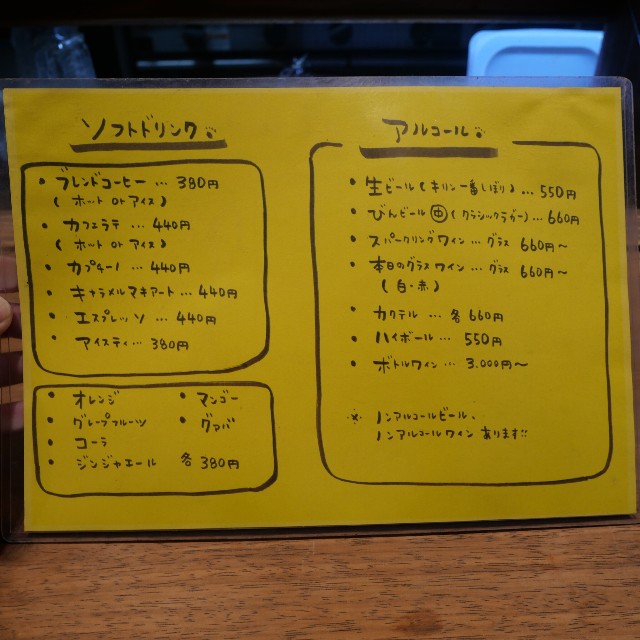 ソフトドリンク
・ブレンドコーヒー … 380円
( ホット or アイス )
・カフェラテ … 440円
( ホット or アイス )
・カプチーノ … 440円
・キャラメルマキアート … 440円
・エスプレッソ … 440円
・アイスティ … 380円
・オレンジ ・マンゴー
・グレープフルーツ ・グァバ
・コーラ
・ジンジャエール 各380円
アルコール
・生ビール ( キリン一番しぼり ) … 550円
・びんビール ㊥ ( クラシックラガー ) … 660円
・スパークリングワイン … グラス 660円〜
・本日のグラスワイン … グラス 660円〜
( 白・赤 )
・カクテル … 各660円
・ハイボール … 550円
・ボトルワイン … 3.000円〜
※ ノンアルコールビール、
ノンアルコールワイン あります!!